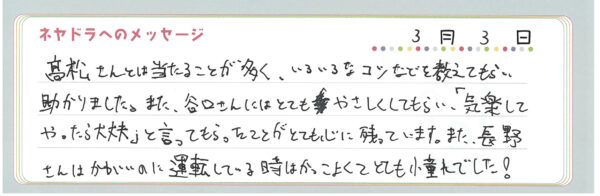 ネヤドラへのメッセージ
3月3日
高松さんとは当たることが多く、いろいろなコツなどを教えてもらい
助かりました。また、谷口さんにはとてもやさしくしてもらい、「気楽して
やったら大丈夫」と言ってもらったことがとても心に残っています。また、長野
さんはかわいいのに運転している時はかっこよくてとても憧れでした!